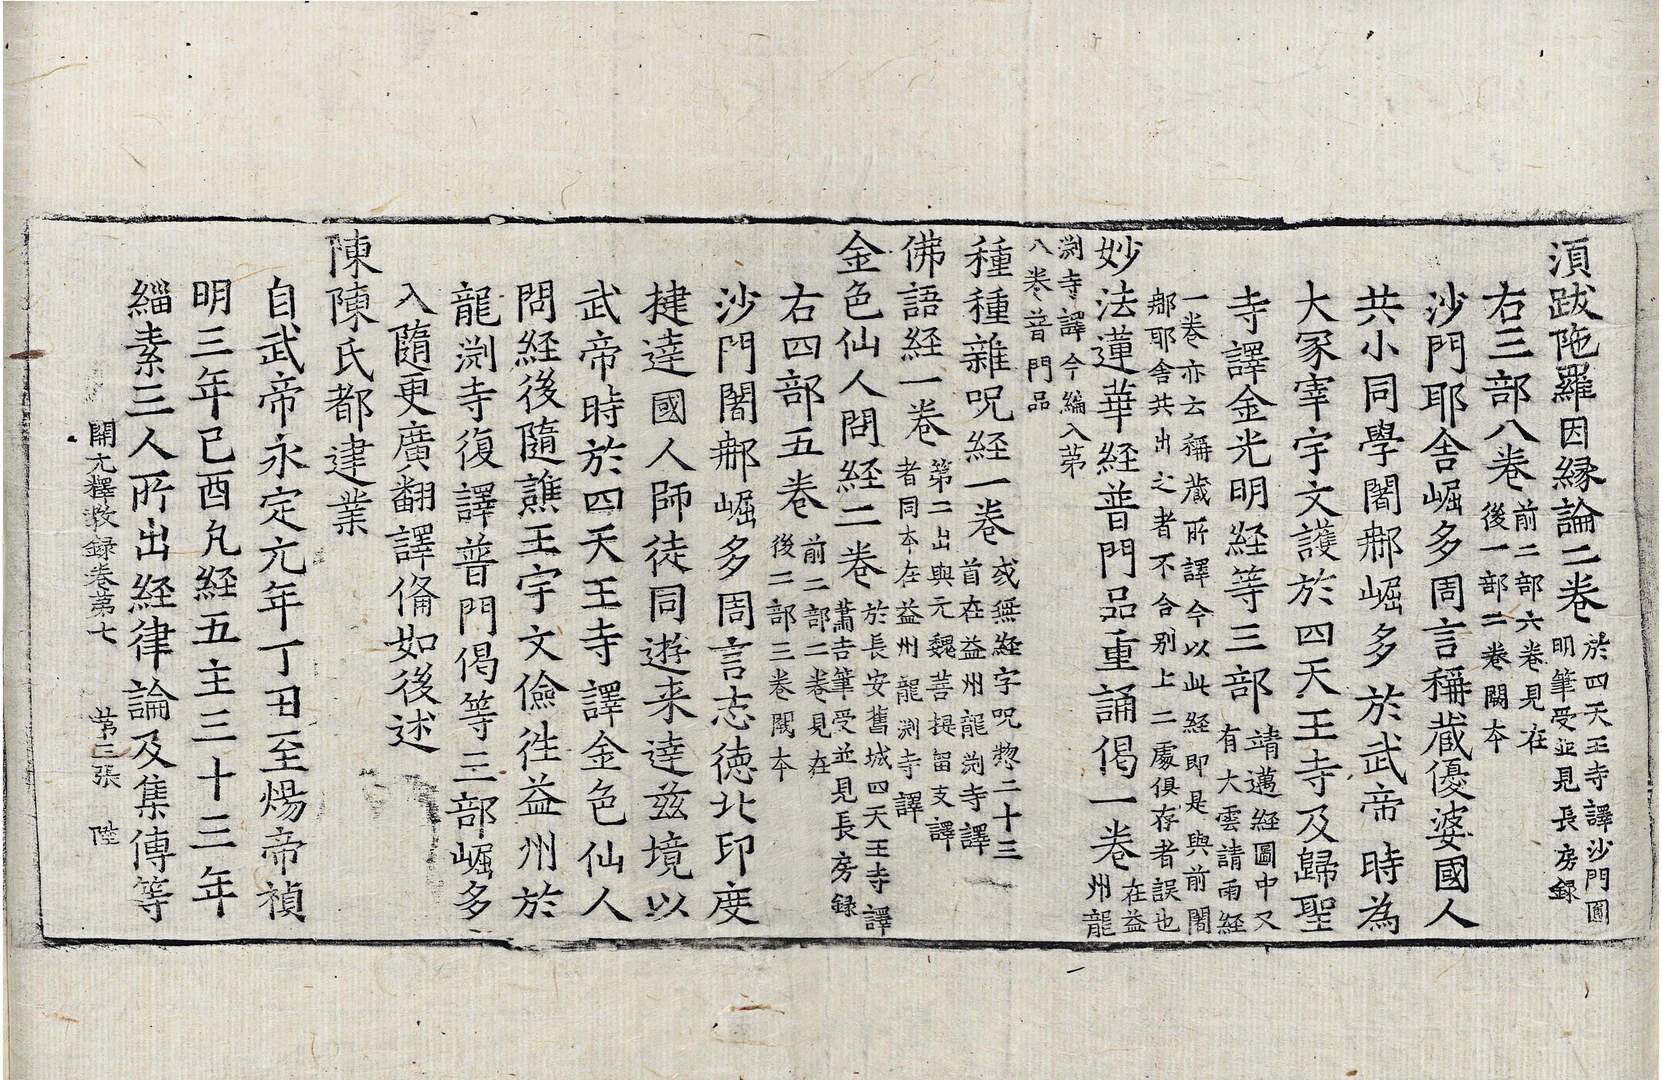 須跋陁羅因縁論二卷 於四天王寺譯沙門圎明筆受並見長房録
右三部八卷 前二部六卷見在後一部二卷闕本
沙門耶舍崛多周言稱蔵優婆國人
共小同學闍𨚗崛多於武帝時為
大冢宰宇文護於四天王寺及歸聖
寺譯金光明經等三部 靖邁經圖中又有大雲請雨經
一卷亦云稱蔵所譯今以此經即是與前闍𨚗耶舍共出之者不合别上二處俱存者誤也
妙法蓮華經普門品重誦偈一卷 在益州龍
渕寺譯今編入苐八卷普門品
種種雜呪經一卷 或無經字呪惣二十三首在益州龍渕寺譯
佛語經一卷 第二出與元魏菩提留支譯者同本在益州龍渕寺譯
金色仙人問經二卷 於長安舊城四天王寺譯蕭吉筆受並見長房録
右四部五卷 前二部二卷見在後二部三卷闕本
沙門闍𨚗崛多周言志徳北印度
揵達國人師徒同遊来達兹境以
武帝時於四天王寺譯金色仙人
問經後隨譙王宇文儉徃益州於
龍渕寺復譯普門偈等三部崛多
入隨更廣翻譯俻如後述
陳陳氏都建業
自武帝永定元年丁丑至煬帝禎
明三年己酉凡經五主三十三年
緇素三人所出經律論及集傳等
開元釋教録卷第七 苐三張 陞